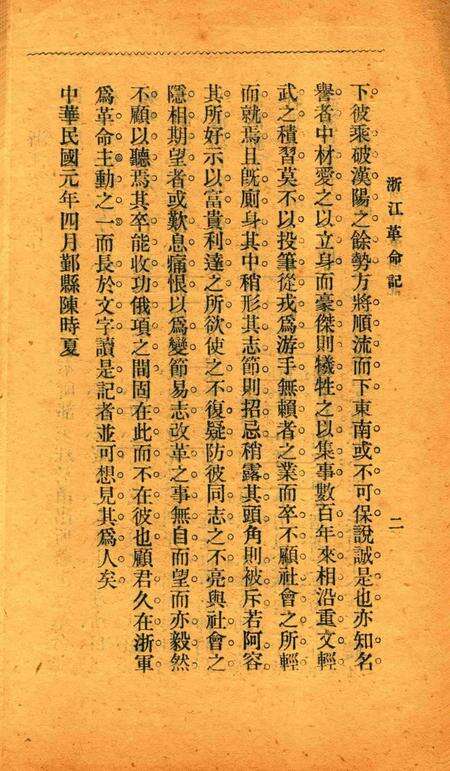 浙江革命記
二
下彼乘破漢陽之餘勢方將順流而下東南或不可保說誠是也亦知名
譽者中材愛之以立身而豪傑則犧牲之以集事數百年來相沿重文輕
武之積習莫不以投筆從戎爲游手無賴者之業而卒不顧社會之所輕
而就焉且旣廁身其中稍形其志節則招忌稍露其頭角則被斥若阿容
其所好示以富貴利達之所欲使之不復疑防彼同志之不亮與社會之
隱相期望者或歎息痛恨以爲變節易志改革之事無自而望而亦毅然
不顧以聽焉其卒能收功俄項之間固在此而不在彼也顧君久在浙軍
爲革命主動之一而長於文字讀是記者並可想見其爲人矣
中華民國元年四月鄞縣陳時夏